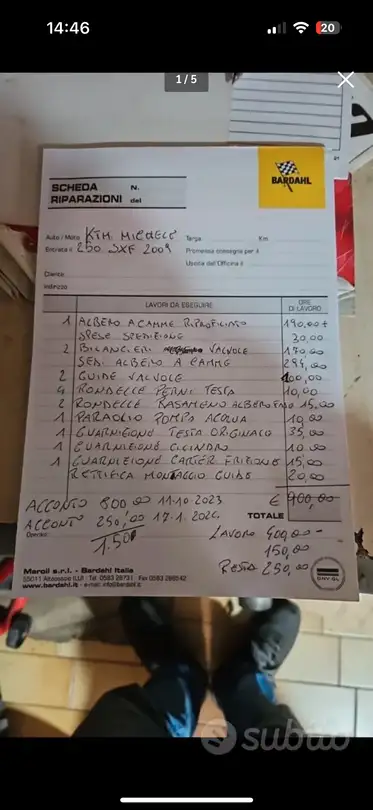 14:46
20
1 / 5
SCHEDA N.
RIPARAZIONI del
BARDAHL
Auto / Moto KTM MICHELE Targa Km
Entrata il 250 SXF 2009 Promessa consegna per il
Uscita dall'Officina il
Cliente
Indirizzo
LAVORI DA ESEGUIRE ORE DI LAVORO
1 ALBERO A CAMME RIPROFILATO 190,00 +
SPESE SPEDIZIONE 30,00
2 BILANCIERI VALVOLE 170,00
SEDI ALBERO A CAMME
2 GUIDE VALVOLE 100,00
4 RONDELLE PERNI TESTA 10,00
2 RONDELLE RASAMENTO ALBERO 15,00
1 PARAOLIO POMPA ACQUA 10,00
1 GUARNIZIONE TESTA ORIGINALE 35,00
1 GUARNIZIONE CILINDRO 10,00
1 GUARNIZIONE CARTER FRIZIONE 15,00
RETTIFICA MONTAGGIO GUIDE 20,00
ACCONTO 800,00 11.10.2023 € 900,00
ACCONTO 250,00 17.1.2024 TOTALE
LAVORO 400,00 -
1.50 150,00
RESTA 250,00
Maroil s.r.l. - Bardahl Italia
55011 Altopascio (LU)
www.bardahl.it - e.mail: info@bardahl.it
DNV·GL
subito